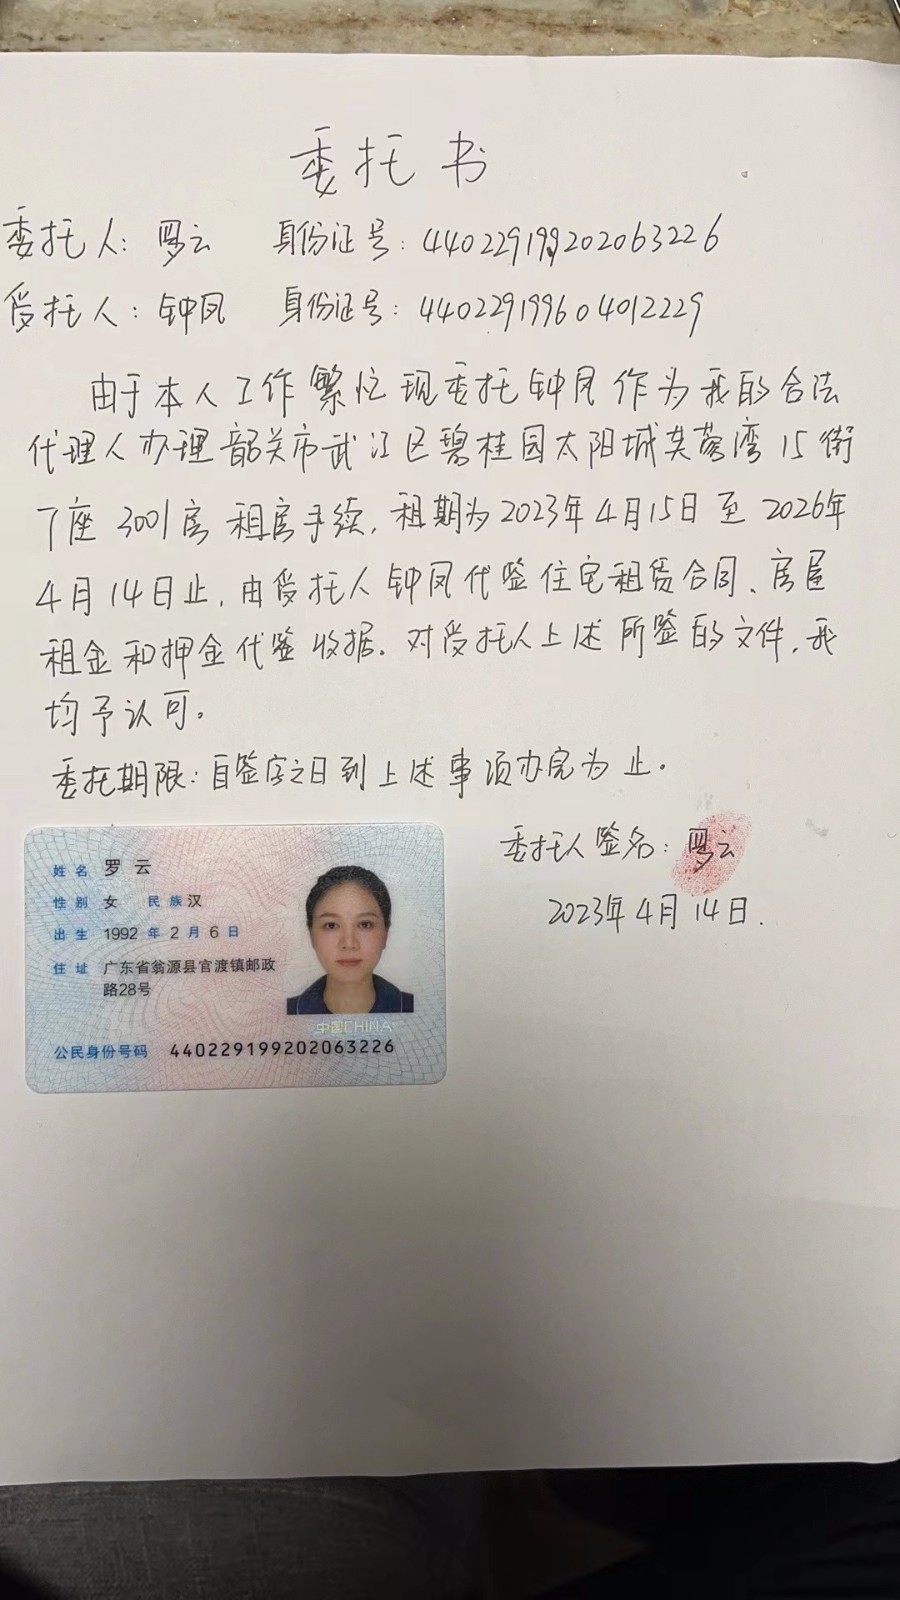 委托书
委托人：罗云 身份证号：440229199202063226
受托人：钟凤 身份证号：440229199604012229
由于本人工作繁忙现委托钟凤作为我的合法
代理人办理韶关市武江区碧桂园太阳城芙蓉湾15街
7座3001房租房手续，租期为2023年4月15日至2026年
4月14日止，由受托人钟凤代签住宅租赁合同、房屋
租金和押金代签收据。对受托人上述所签的文件，我
均予认可。
委托期限：自签字之日到上述事项办完为止。
委托人签名：罗云
2023年4月14日.
姓名 罗云
性别 女 民族 汉
出生 1992年2月6日
住址 广东省翁源县官渡镇邮政
路28号
中国CHINA
公民身份号码 440229199202063226